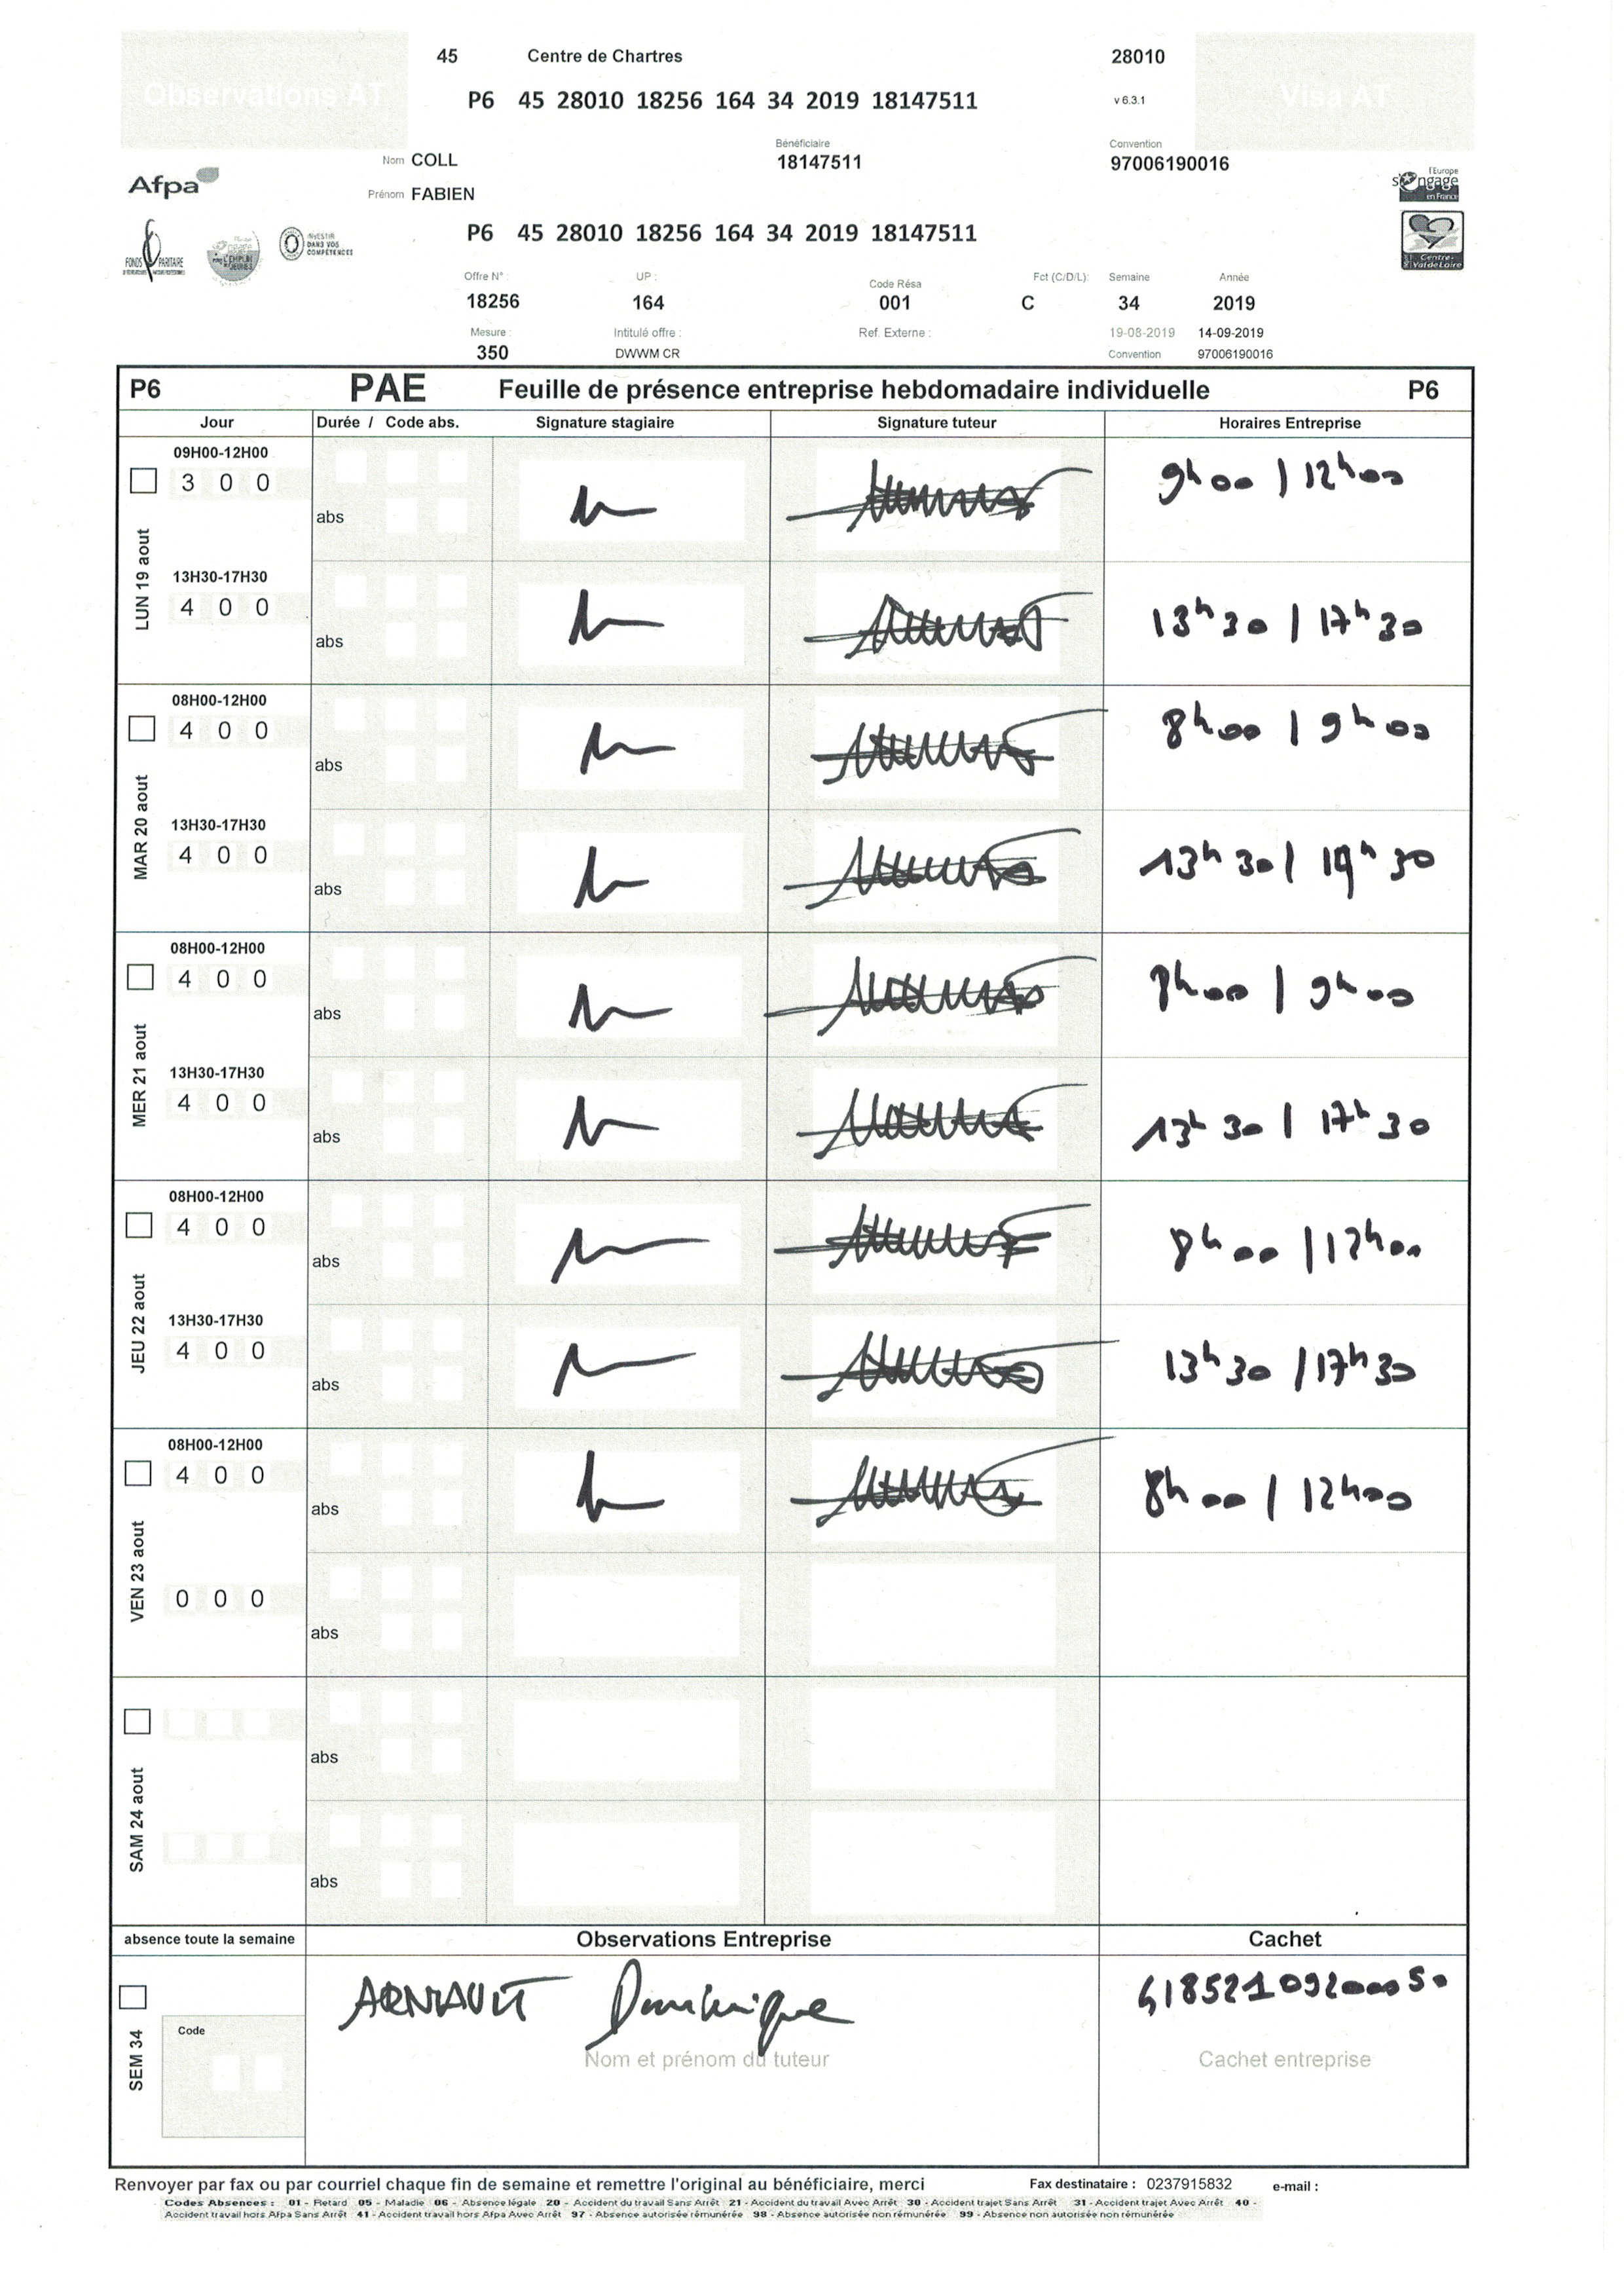 Observations AT
45 Centre de Chartres 28010
Visa AT
P6 45 28010 18256 164 34 2019 18147511 v 6.3.1
Nom COLL Bénéficiaire 18147511 Convention 97006190016
Afpa
Prénom FABIEN
l'Europe s'engage en France
P6 45 28010 18256 164 34 2019 18147511
FONDS PARITAIRE
INVESTIR DANS VOS COMPÉTENCES
Centre-Val de Loire
Offre N° : UP : Code Résa Fct (C/D/L): Semaine Année
18256 164 001 C 34 2019
Mesure : Intitulé offre : Ref. Externe : 19-08-2019 14-09-2019
350 DWWM CR Convention 97006190016
P6 PAE Feuille de présence entreprise hebdomadaire individuelle P6
Jour Durée / Code abs. Signature stagiaire Signature tuteur Horaires Entreprise
LUN 19 aout
09H00-12H00
3 0 0 abs 9h00 | 12h00
13H30-17H30
4 0 0 abs 13h30 | 17h30
MAR 20 aout
08H00-12H00
4 0 0 abs 8h00 | 9h00
13H30-17H30
4 0 0 abs 13h30 | 19h30
MER 21 aout
08H00-12H00
4 0 0 abs 8h00 | 9h00
13H30-17H30
4 0 0 abs 13h30 | 17h30
JEU 22 aout
08H00-12H00
4 0 0 abs 8h00 | 12h00
13H30-17H30
4 0 0 abs 13h30 | 17h30
VEN 23 aout
08H00-12H00
4 0 0 abs 8h00 | 12h00
0 0 0 abs
SAM 24 aout
abs
abs
absence toute la semaine Observations Entreprise Cachet
SEM 34
Code
ARNAULT Dominique
Nom et prénom du tuteur Cachet entreprise
Renvoyer par fax ou par courriel chaque fin de semaine et remettre l'original au bénéficiaire, merci Fax destinataire : 0237915832 e-mail :
Codes Absences : 01 - Retard 05 - Maladie 06 - Absence légale 20 - Accident du travail Sans Arrêt 21 - Accident du travail Avec Arrêt 30 - Accident trajet Sans Arrêt 31 - Accident trajet Avec Arrêt 40 -
Accident travail hors Afpa Sans Arrêt 41 - Accident travail hors Afpa Avec Arrêt 97 - Absence autorisée rémunérée 98 - Absence autorisée non rémunérée 99 - Absence non autorisée non rémunérée